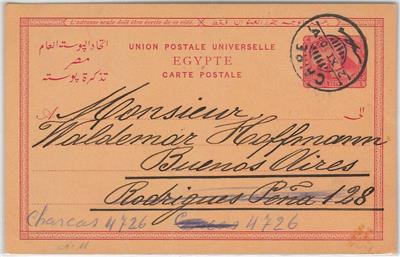 L'adresse seule doit être écrite de ce côté.
اتحاد البوستة العام
مصر
تذكرة بوسته
UNION POSTALE UNIVERSELLE
EGYPTE
CARTE POSTALE
A
الى
Monsieur
Waldemar Hoffmann
Buenos Aires
Rodrigues Peña 128
Charcas 4726
4726